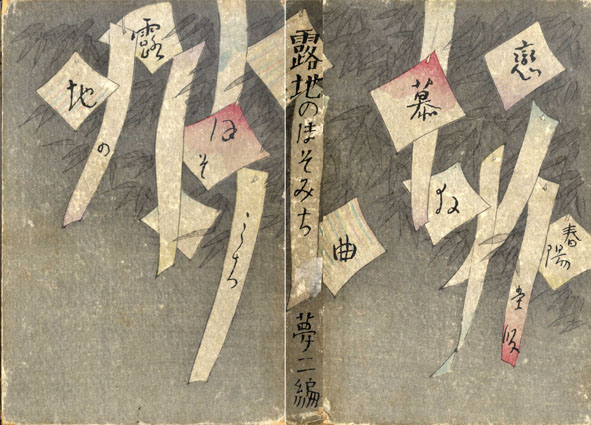 戀
慕
曲
春陽
堂版
露地のほそみち 夢二編
露
地
の
ほそ
みち